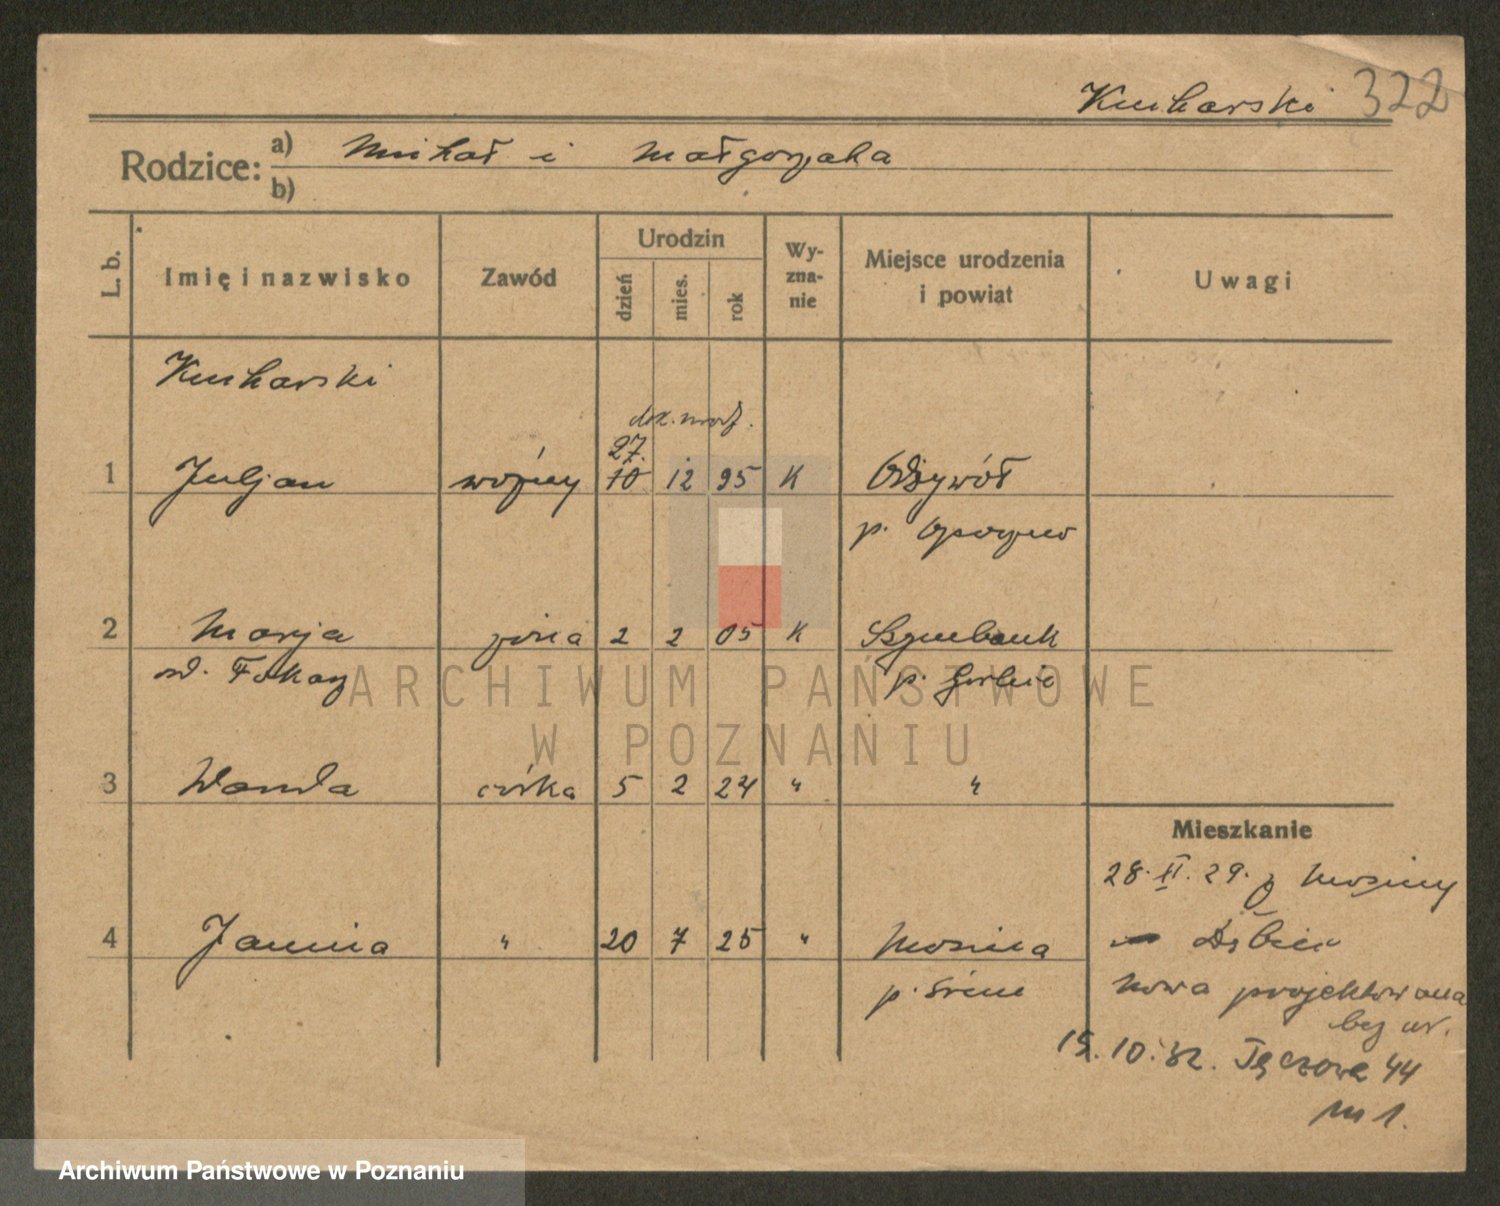 Kucharski 322
Rodzice: a) Michał i Małgorzata
b)
L. b. Imię i nazwisko Zawód Urodzin dzień mies. rok Wy-zna-nie Miejsce urodzenia i powiat Uwagi
Kucharski
dok. urodz.
27.
1 Juljan woźny 10 12 95 K Odżywół
p. Opoczno
2 Marja żona 2 2 05 K Szymbark
od. Fukacz p. Gorlice
3 Wanda córka 5 2 24 " "
Mieszkanie
28. II. 29. z Mosiny
4 Janina " 20 7 25 " Mosina Dębiec
p. Śrem nowa projektowana
bez nr.
15. 10. 32. Tęczowa 44
m 1.
ARCHIWUM PAŃSTWOWE
W POZNANIU
Archiwum Państwowe w Poznaniu